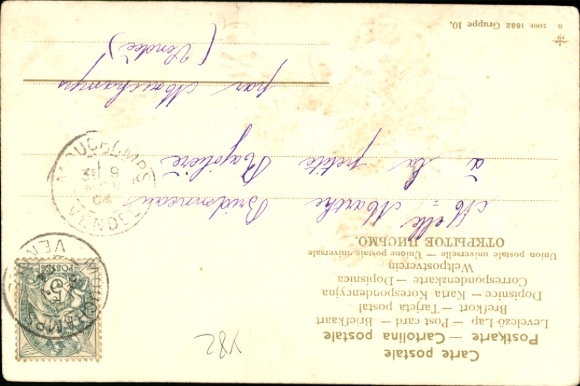 Carte postale
Postkarte — Cartolina postale
Levelező Lap — Post card — Briefkaart
Brefkort — Tarjeta postal
Dopisnice — Karta Korespondencyjna
Correspondenzkarte — Dopisnica
Weltpostverein
Union postale universelle — Unione postale universale
ОТКРЫТОЕ ПИСЬМО.
Melle Marthe Bridonneau
à la petite Rajolière
par Mouchamps
(Vendée)
SERIE 1882 Gruppe 10.
MOUCHAMPS
VENDÉE
MOUCHAMPS
VEN
POSTES
5
Y82